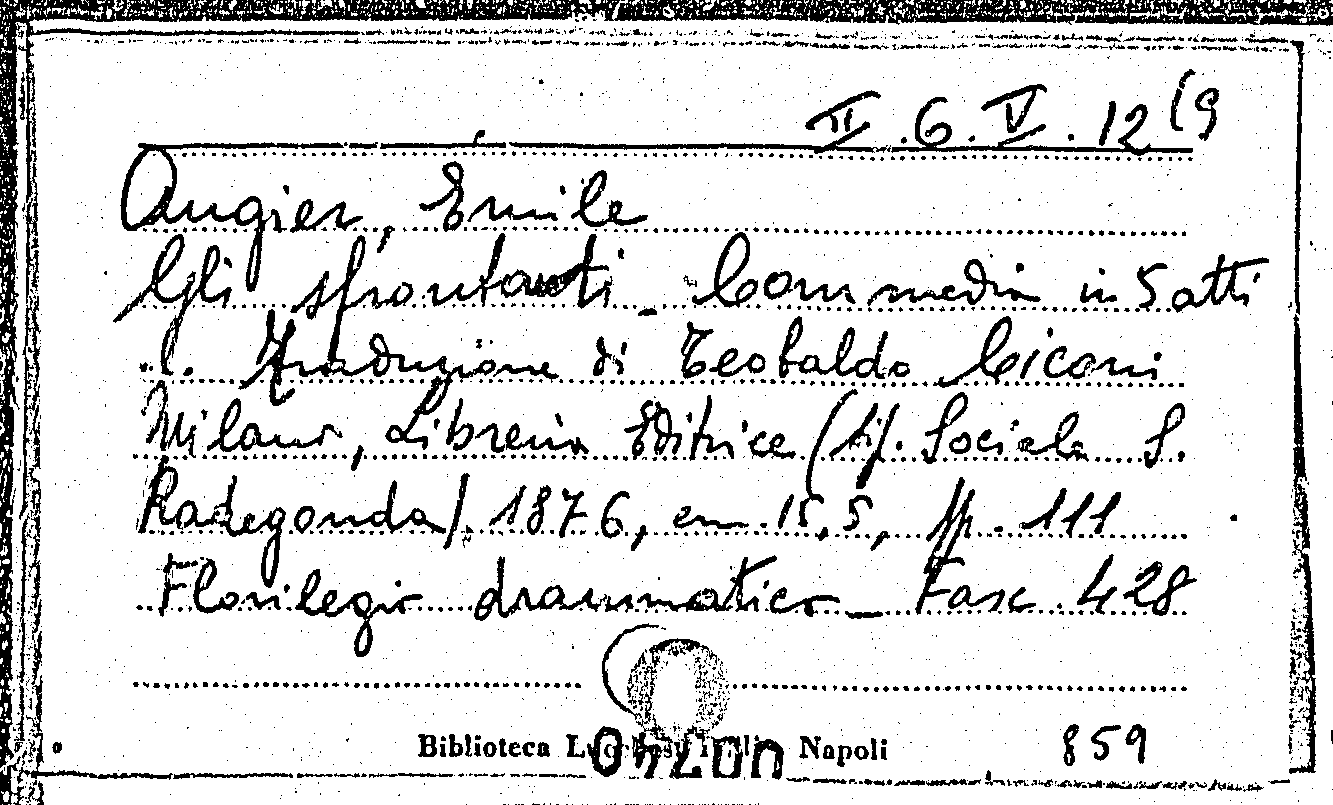 II.6.V.12(9
Augier, Emile
Gli sfrontati - Commedia in 5 atti
... Traduzione di Teobaldo Ciconi
Milano, Libreria Editrice (tip. Sociale S.
Radegonda). 1876, cm. 15,5, pp. 111
Florilegio drammatico - Fasc. 428
Biblioteca Lucchesi Palli Napoli
859